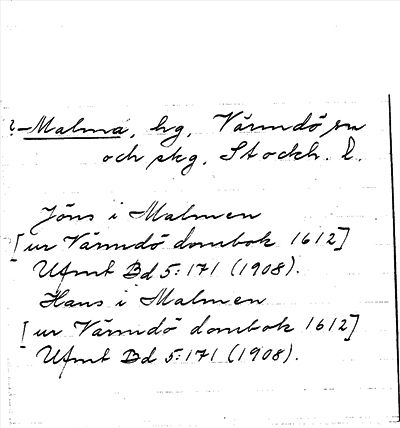 ?-Malma, hg, Värmdö sn
och skg, Stockh. l.
Jöns i Malmen
[ur Värmdö dombok 1612]
Ufmt Bd 5:171 (1908).
Hans i Malmen
[ur Värmdö dombok 1612]
Ufmt Bd 5:171 (1908).